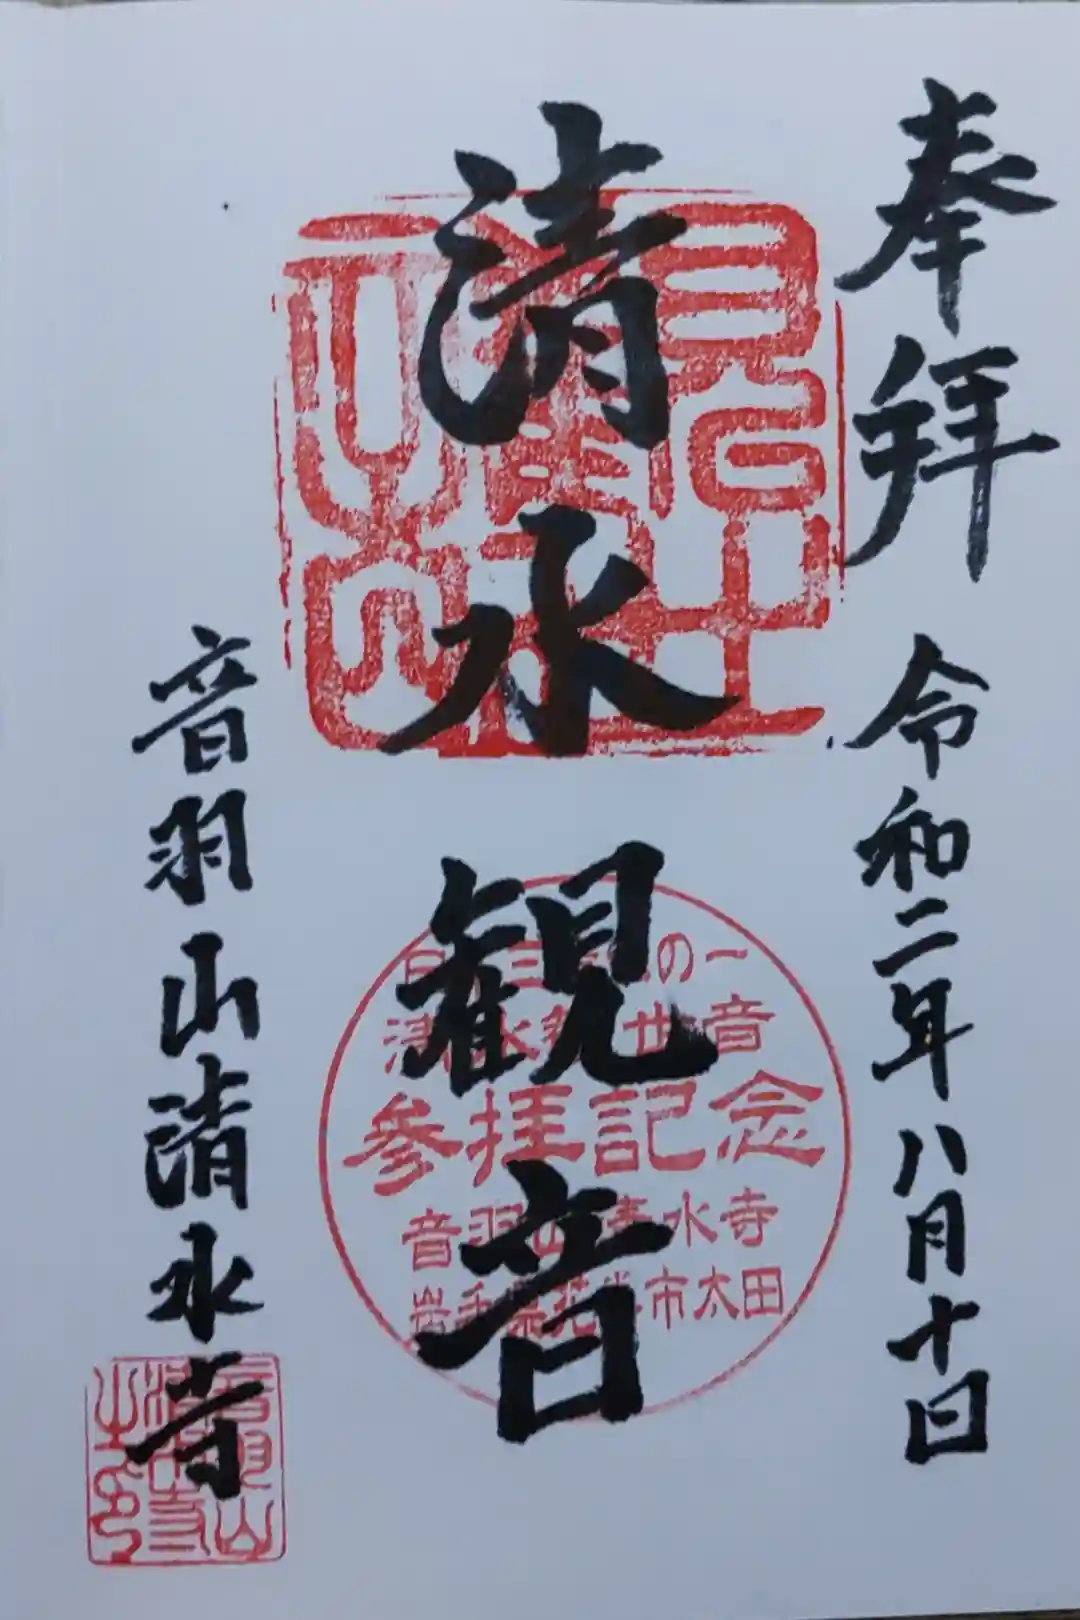 奉拝 令和二年八月十日
清水観音
日 三 の一
清水観世音
参拝記念
音羽山清水寺
岩手県花巻市太田
音羽山清水寺
音羽山
清水寺
之印